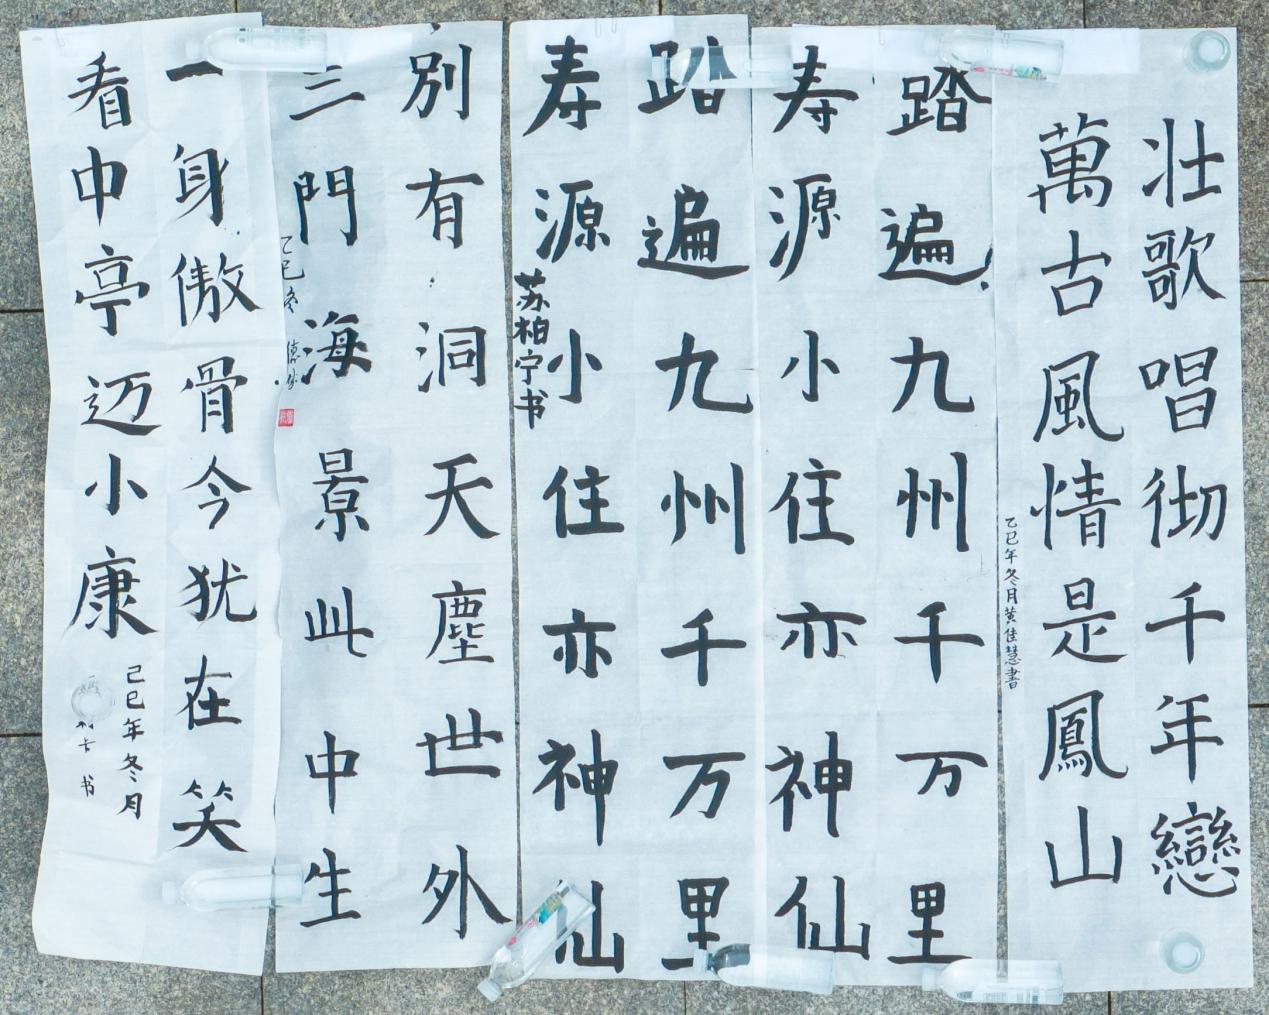 壮歌唱彻千年戀
萬古風情是鳳山
乙巳年冬月黄佳慧書
踏遍九州千万里
寿源小住亦神仙
踏遍九州千万里
寿源小住亦神仙
苏柏宁书
别有洞天塵世外
三門海景此中生
乙巳冬
一身傲骨今犹在笑
看中亭迈小康
己巳年冬月
书